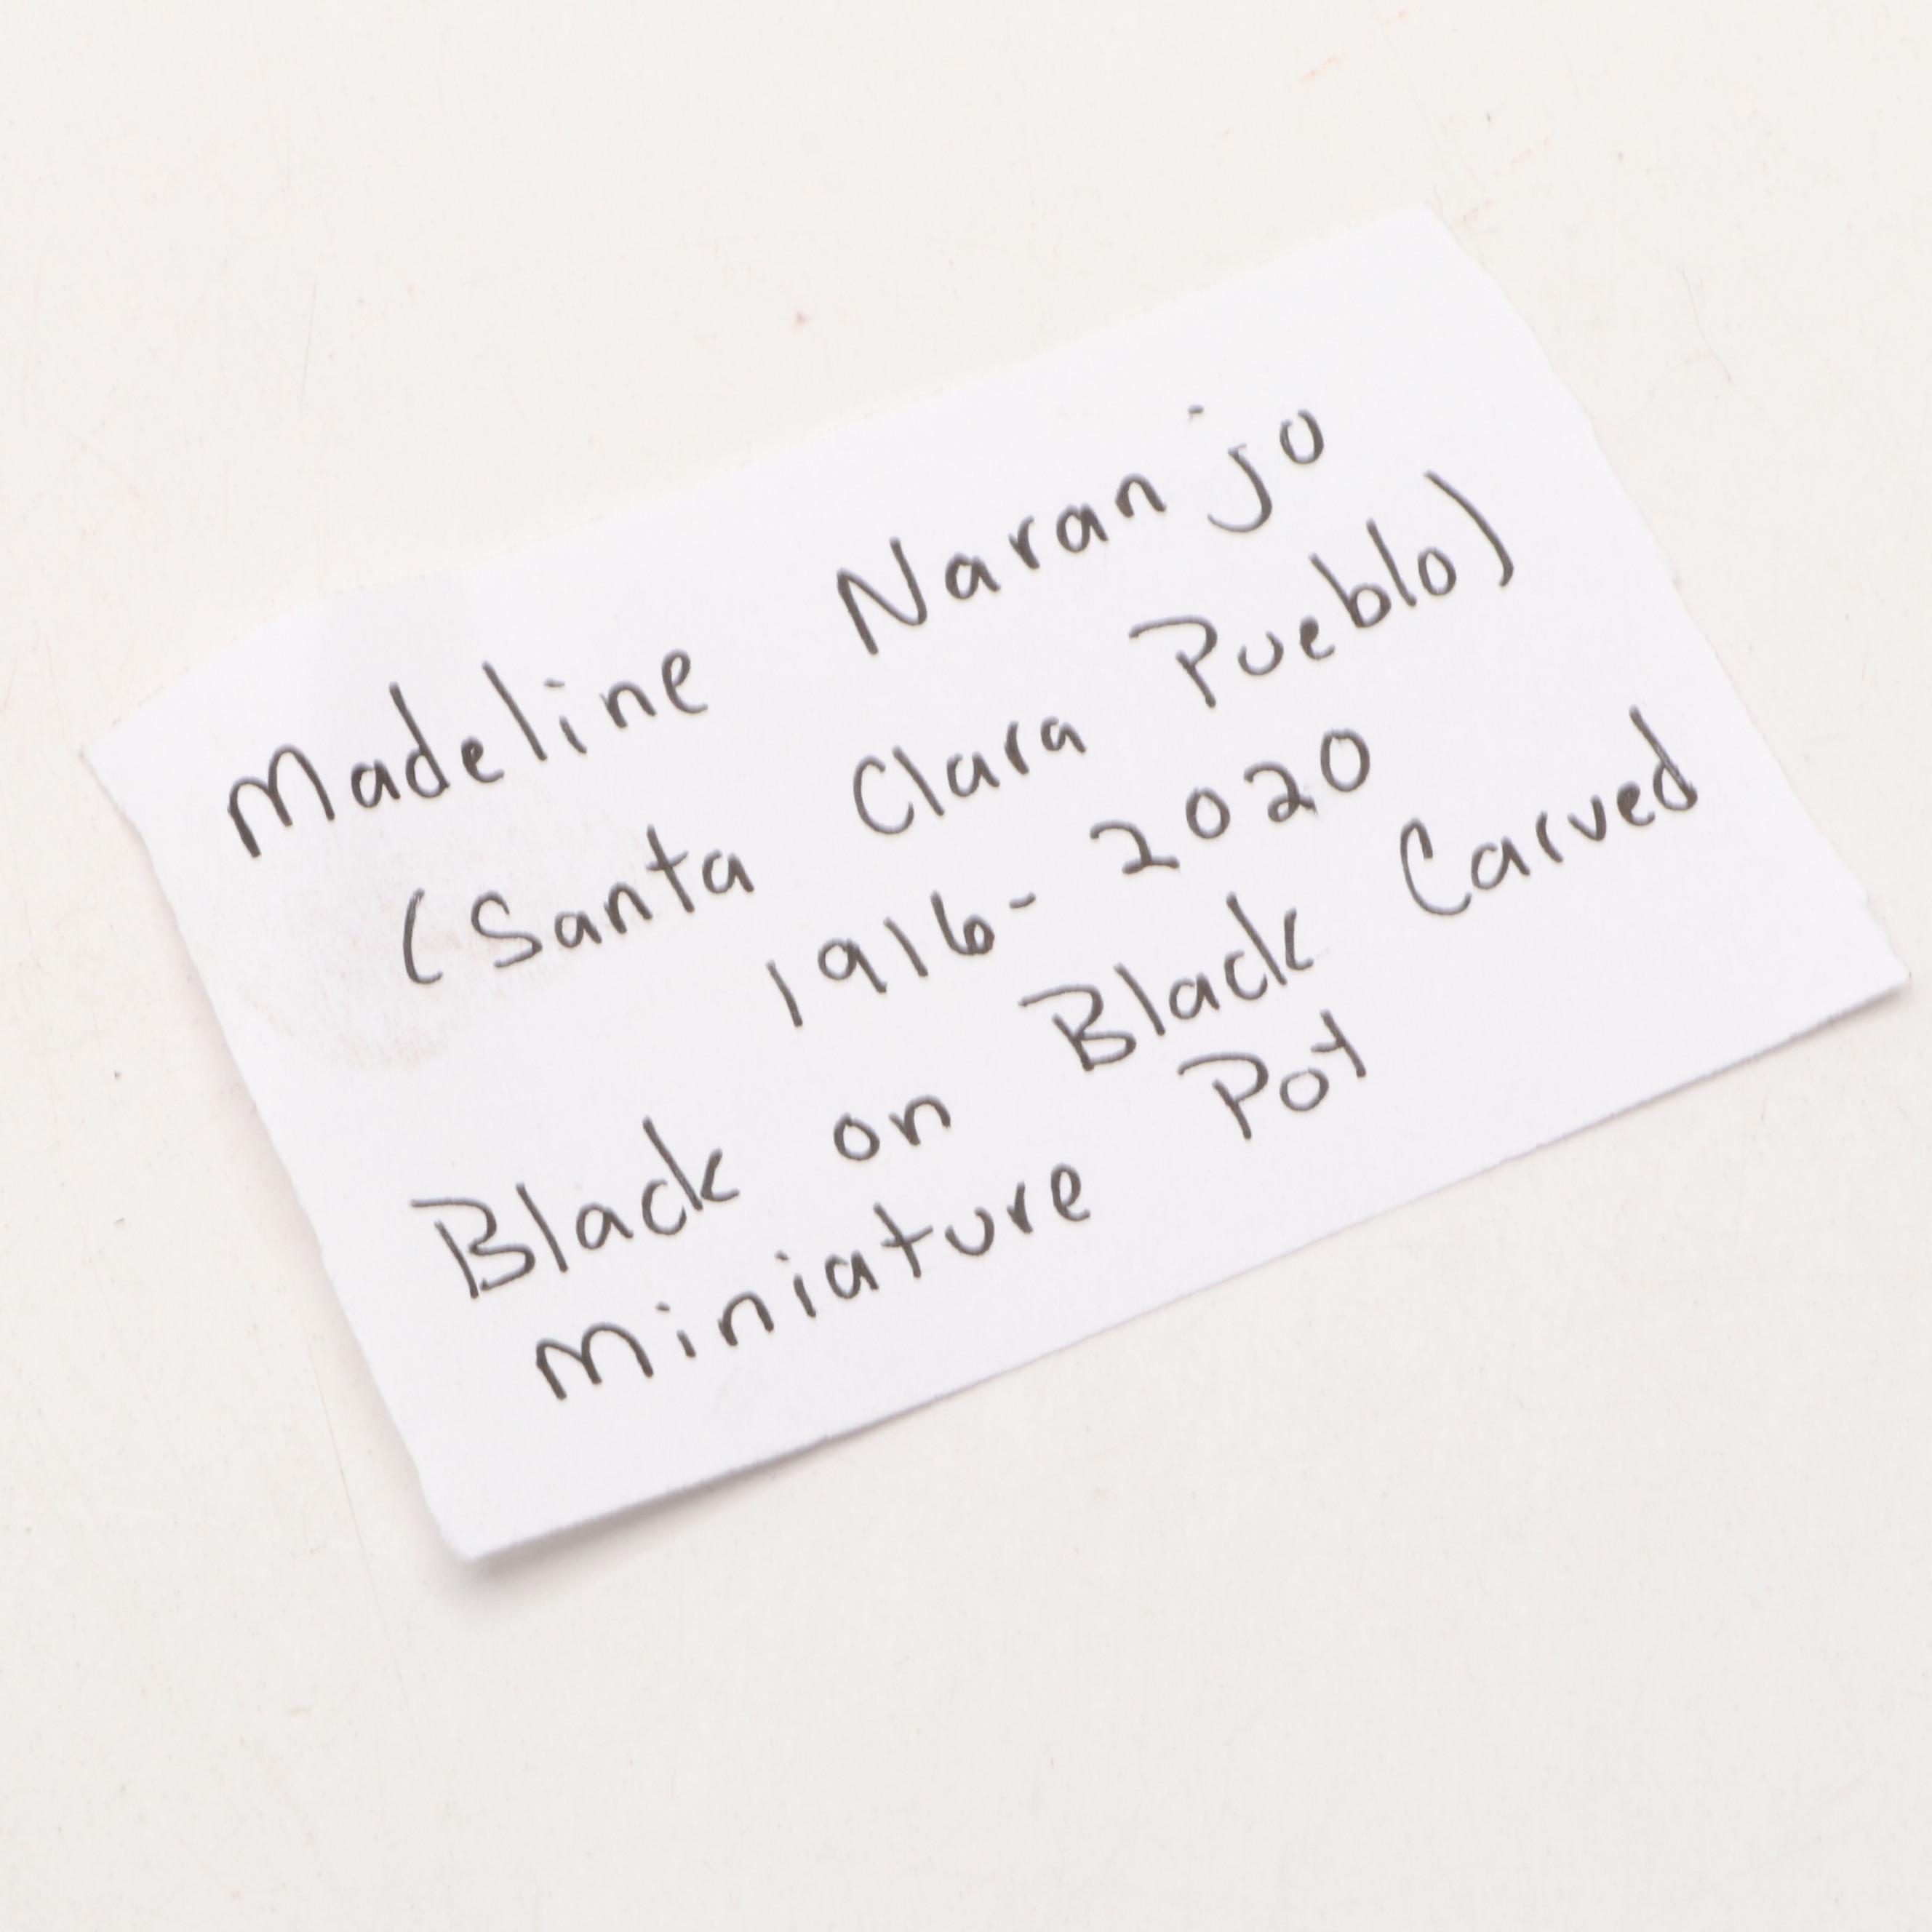 Madeline Naranjo
(Santa Clara Pueblo)
1916-2020
Black on Black Carved
Miniature Pot